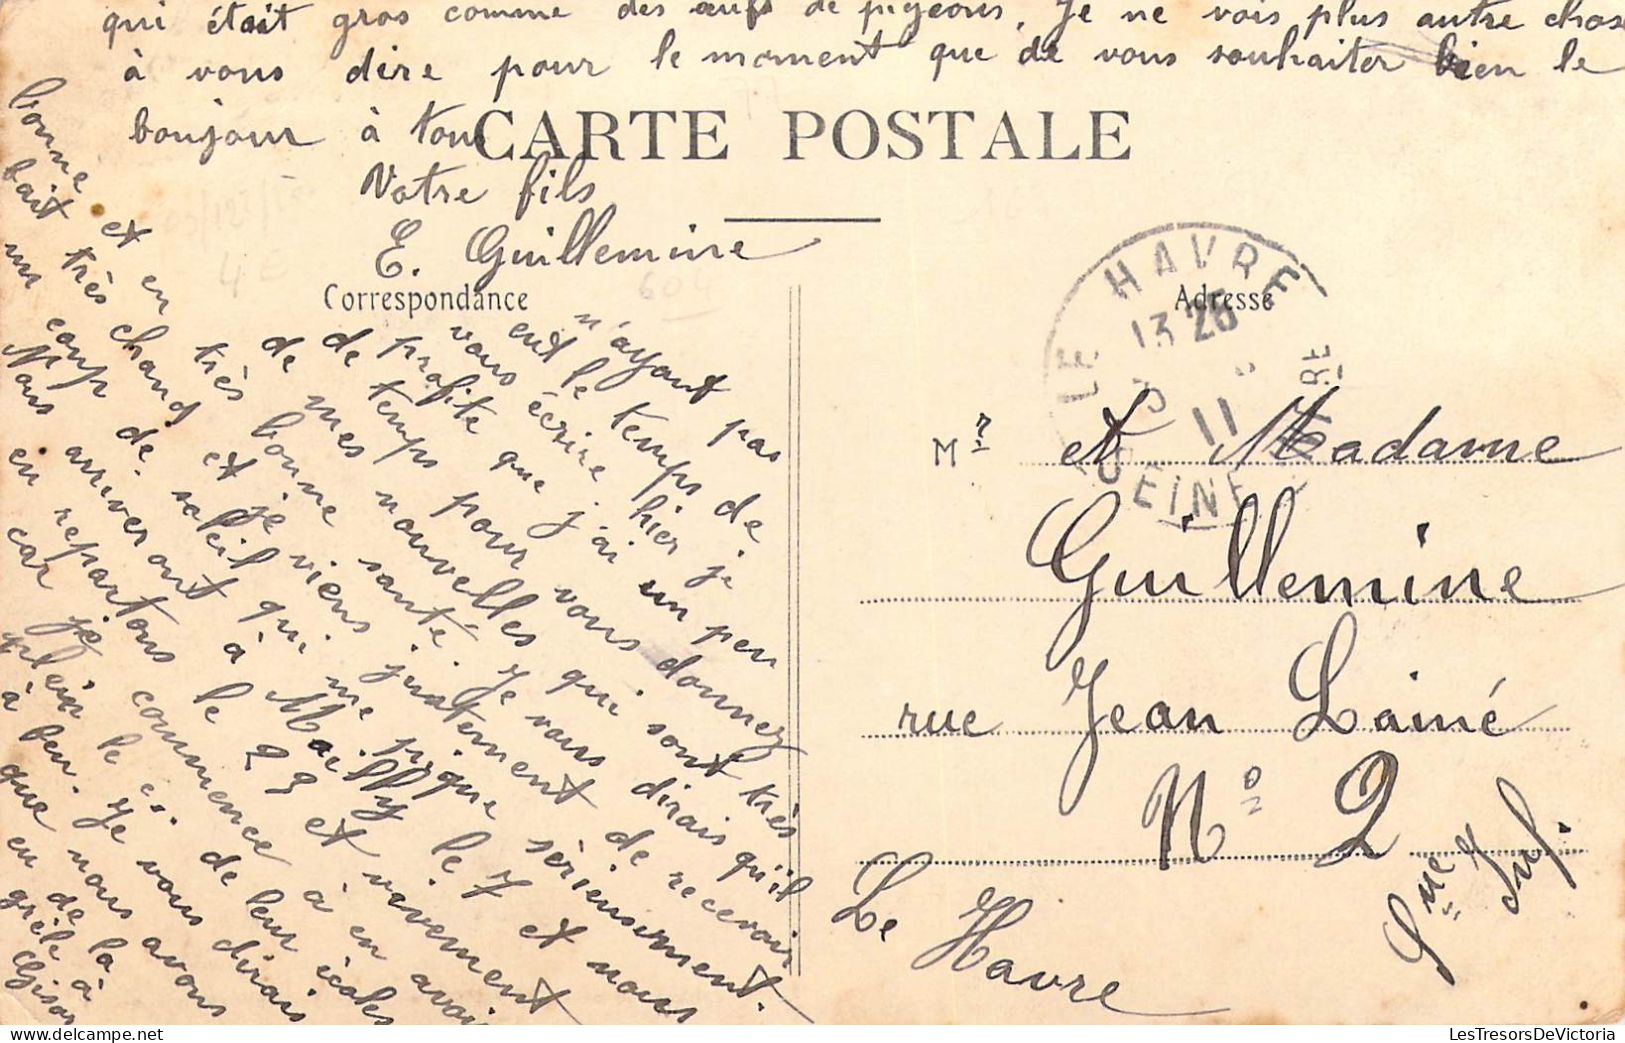 n'ayant pas
eut le temps de
vous écrire hier je
profite que j'ai un peu
de temps pour vous donnez
de mes nouvelles qui sont très
bonne et en très bonne santé. Je vous dirais qu'il
fait très chaud et je viens justement de recevoir
un coup de soleil qui me pique sérieusement.
Nous arriveront à Mailly le 7 et nous
en repartons le 23 et vivement
car je commence à en avoir
plein le cs. de leur écoles
à feu. Je vous dirais
que nous avons
eu de la
grêle à
Gisors
qui était gros comme des œufs de pigeons. Je ne vois plus autre chose
à vous dire pour le moment que de vous souhaiter bien le
bonjour à tous
Votre fils
E. Guillemine
CARTE POSTALE
Correspondance
Adresse
LE HAVRE
13 26
11
SEINE INFRE
Mr et Madame
Guillemine
rue Jean Lainé
No 2
Le Havre
Sne Inf.
4€
604
LesTresorsDeVictoria